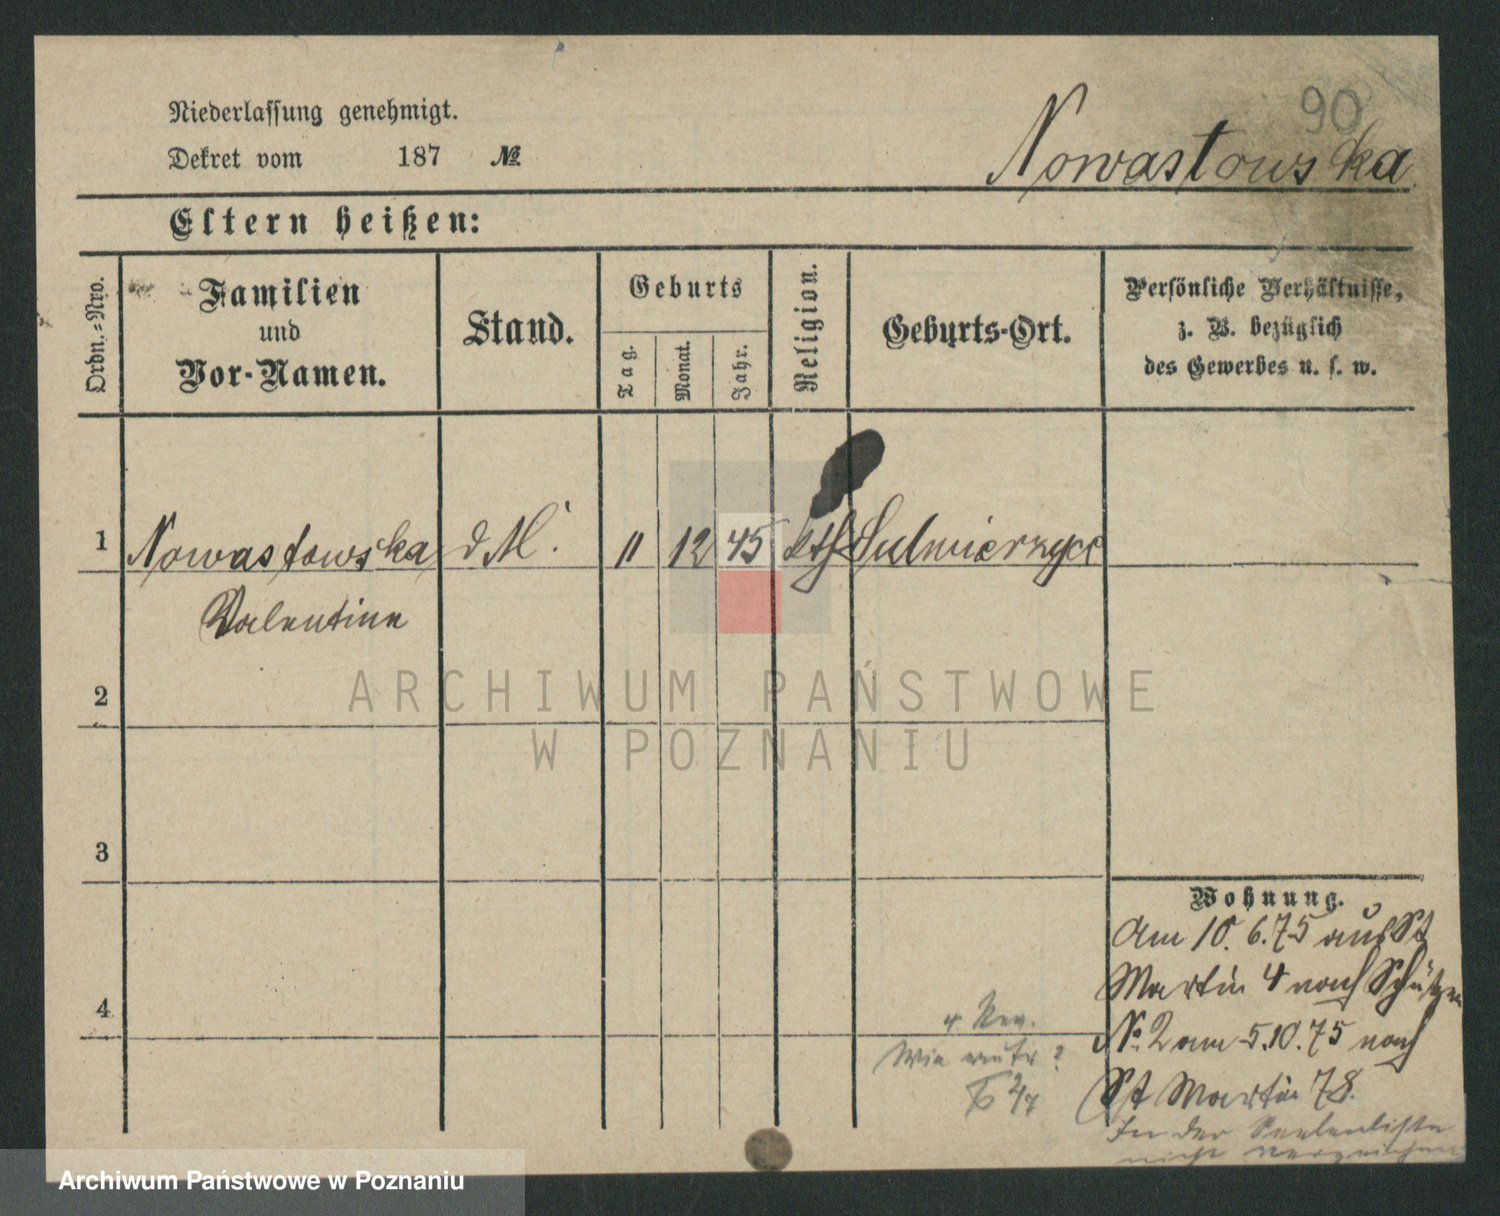 90
Niederlassung genehmigt.
Dekret vom 187 №
Nowastowska
Eltern heißen:
Ordn.-Nro.
Familien
und
Vor-Namen.
Stand.
Geburts
Tag.
Monat.
Jahr.
Religion.
Geburts-Ort.
Persönliche Verhältnisse,
z. B. bezüglich
des Gewerbes u. s. w.
1 Nowastowska d M. 11 12 45 kth Sulmierzyce
Valentine
2
3
4
Wohnung.
Am 10. 6. 75 aus St
Martin 4 nach Schützen
№ 2 am 5.10.75 nach
St Martin 78.
In der Seelenliste
nicht verzeichnet
4 Rev.
Wie
ARCHIWUM PAŃSTWOWE
W POZNANIU
Archiwum Państwowe w Poznaniu